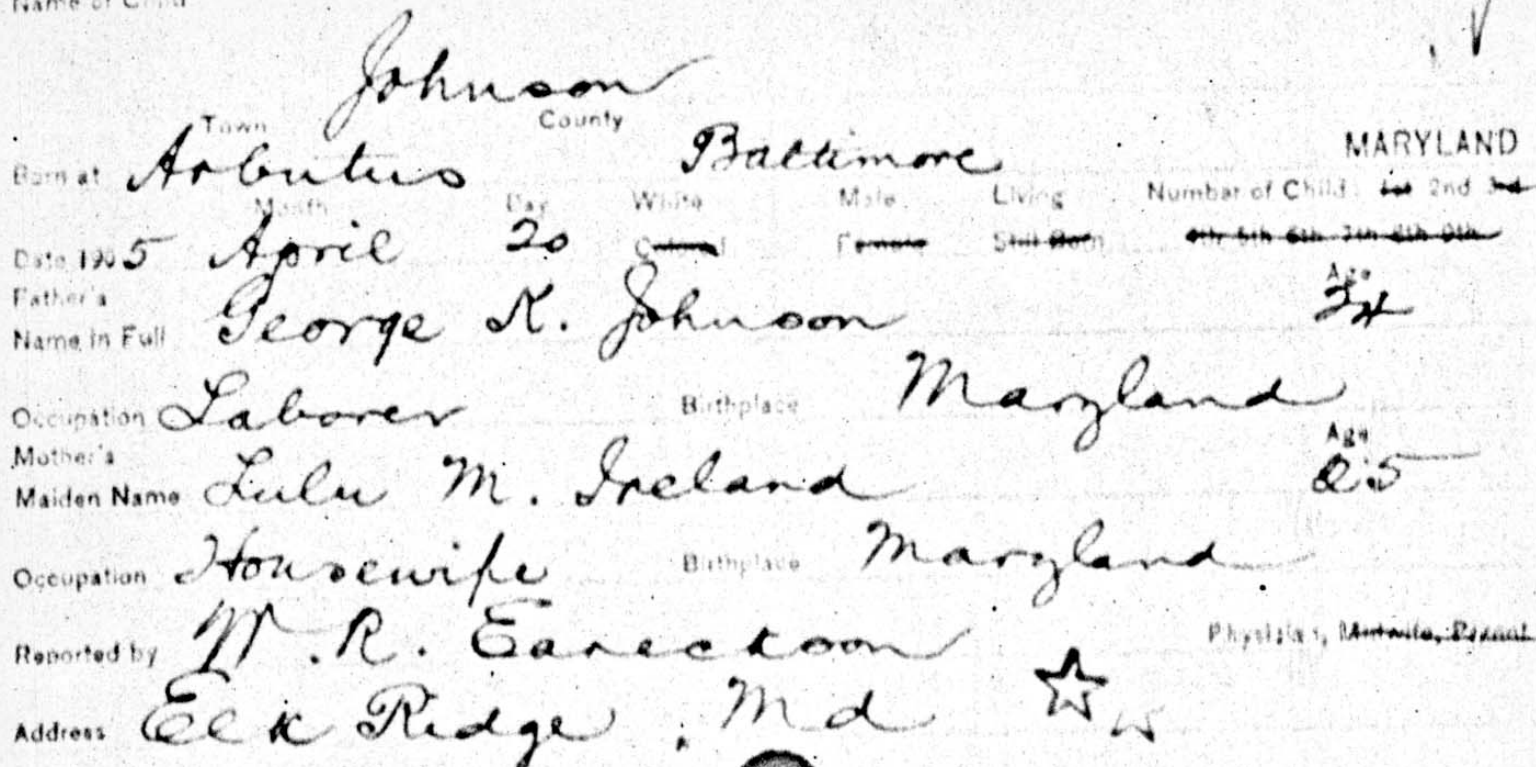 Name of Child
Johnson
Town County
Born at Arbutus Baltimore MARYLAND
Month Day White Male Living Number of Child: 1st 2nd 3rd
Date 1905 April 20 Colored Female Still Born 4th 5th 6th 7th 8th 9th
Father's Age
Name in Full George K. Johnson 24
Occupation Laborer Birthplace Maryland
Mother's Age
Maiden Name Lulu M. Ireland 25
Occupation Housewife Birthplace Maryland
Reported by W. R. Eareckson Physician, Midwife, Parent
Address Elk Ridge, Md